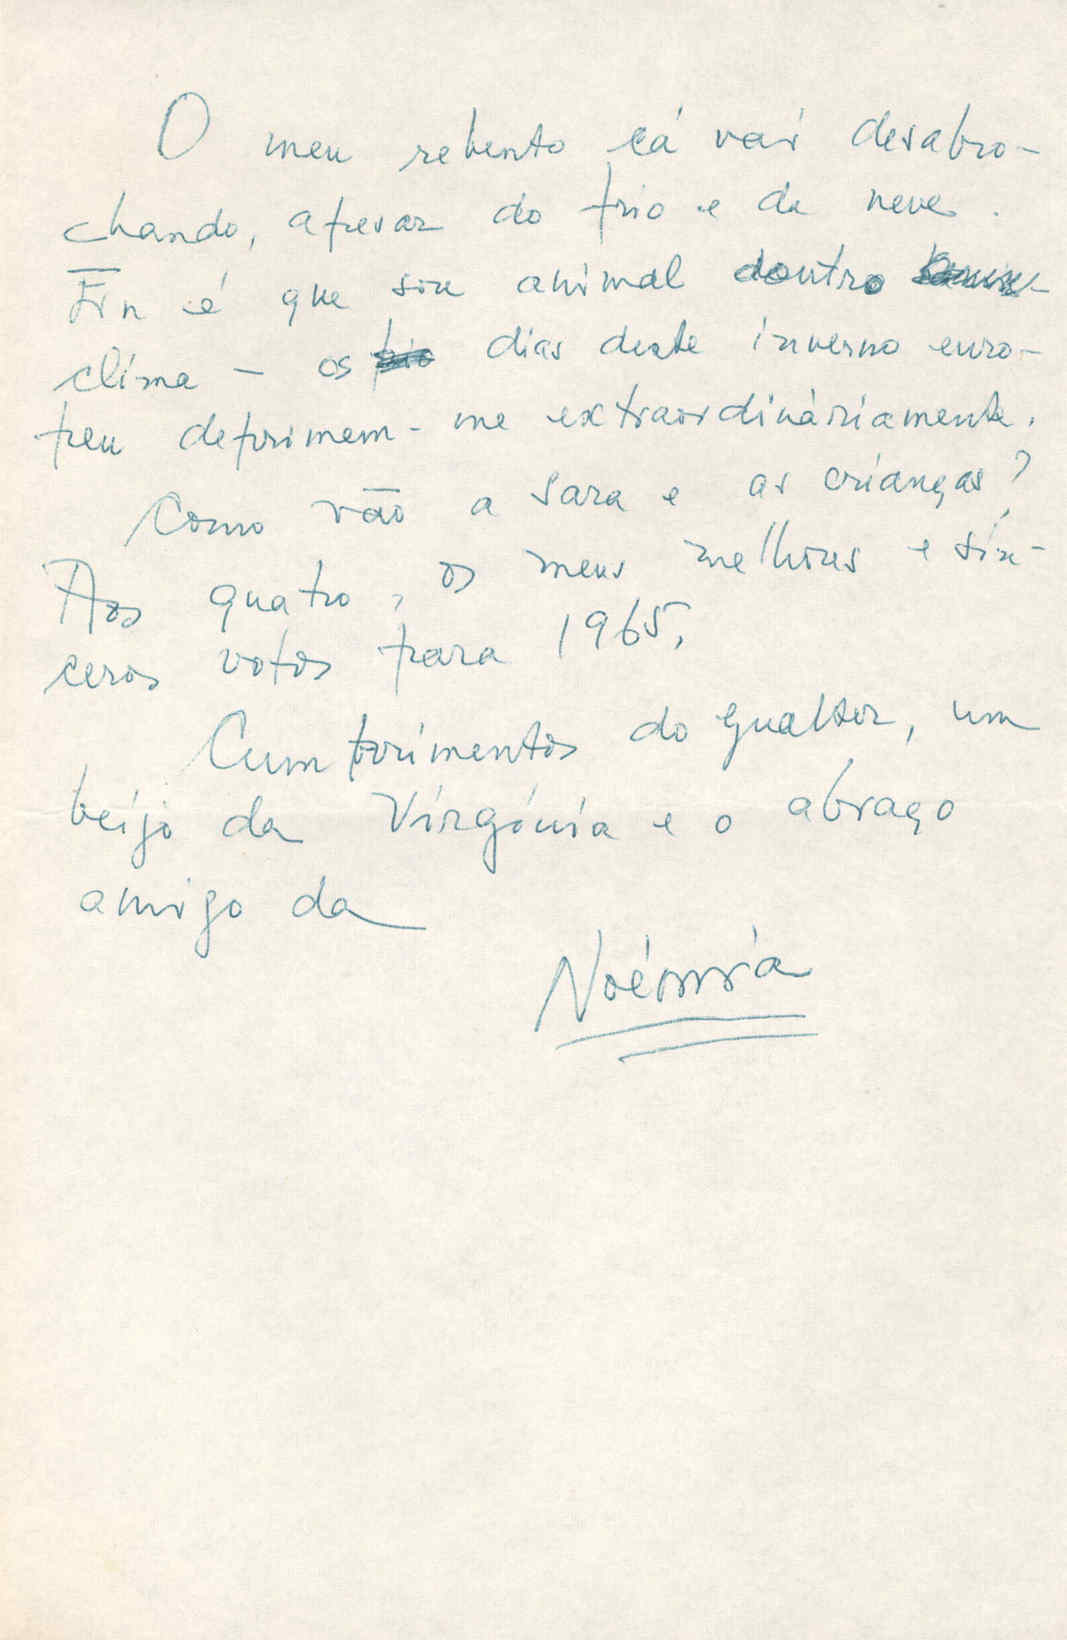 O meu rebento cá vai desabro-
chando, apesar do frio e da neve.
Eu é que sou animal doutro
clima — os dias deste inverno euro-
peu deprimem-me extraordinàriamente.
Como vão a Sara e as crianças?
Aos quatro, os meus melhores e sin-
ceros votos para 1965.
Cumprimentos do Gualter, um
beijo da Virgínia e o abraço
amigo da
Noémia